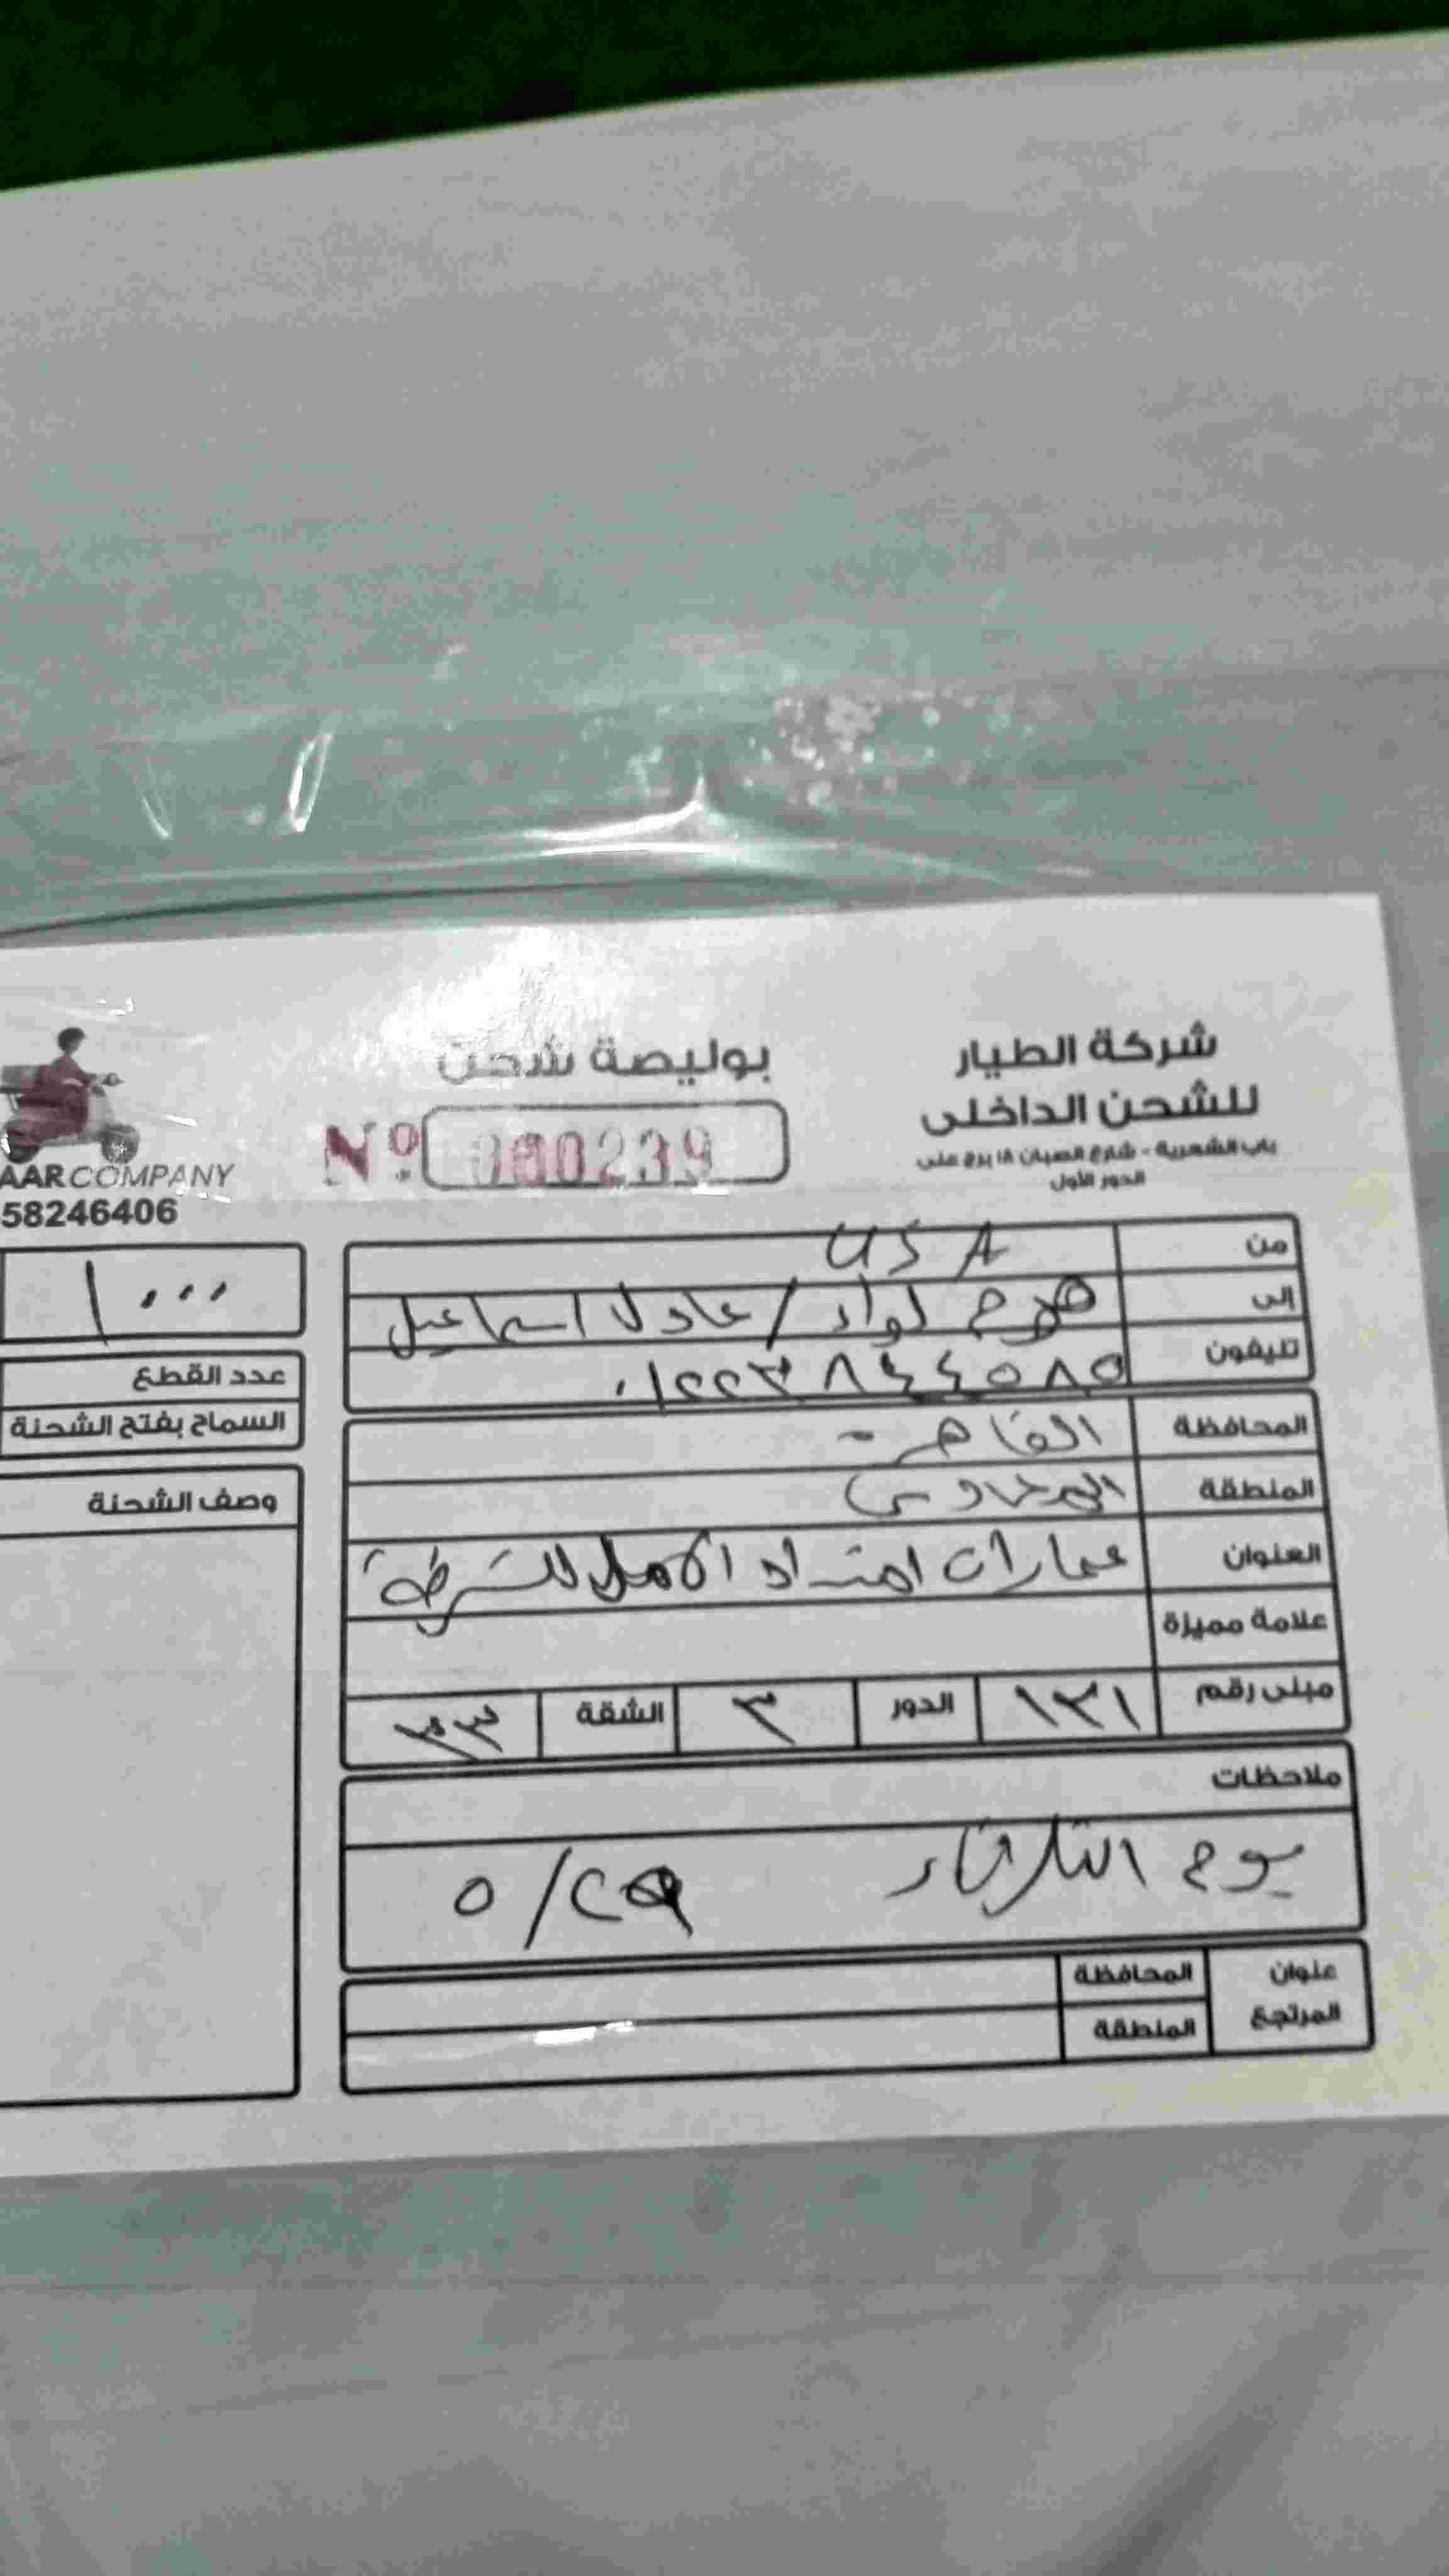 شركة الطيار
للشحن الداخلى
باب الشعرية - شارع الصبان ١٨ برج على
الدور الأول
بوليصة شحن
Nº 000239
AARCOMPANY
58246406
من USA
إلى لواء / عادل اسماعيل
تليفون ٠١٢٢٣٨٤٤٥٨٥
١٠٠٠
عدد القطع
السماح بفتح الشحنة
وصف الشحنة
المحافظة القاهرة
المنطقة
العنوان عمارات امتداد الامل للشرطة
علامة مميزة
مبنى رقم ١٣١ الدور ٣ الشقة ٣٣
ملاحظات
يوم الثلاثاء ٢٩/٥
عنوان المرتجع
المحافظة
المنطقة